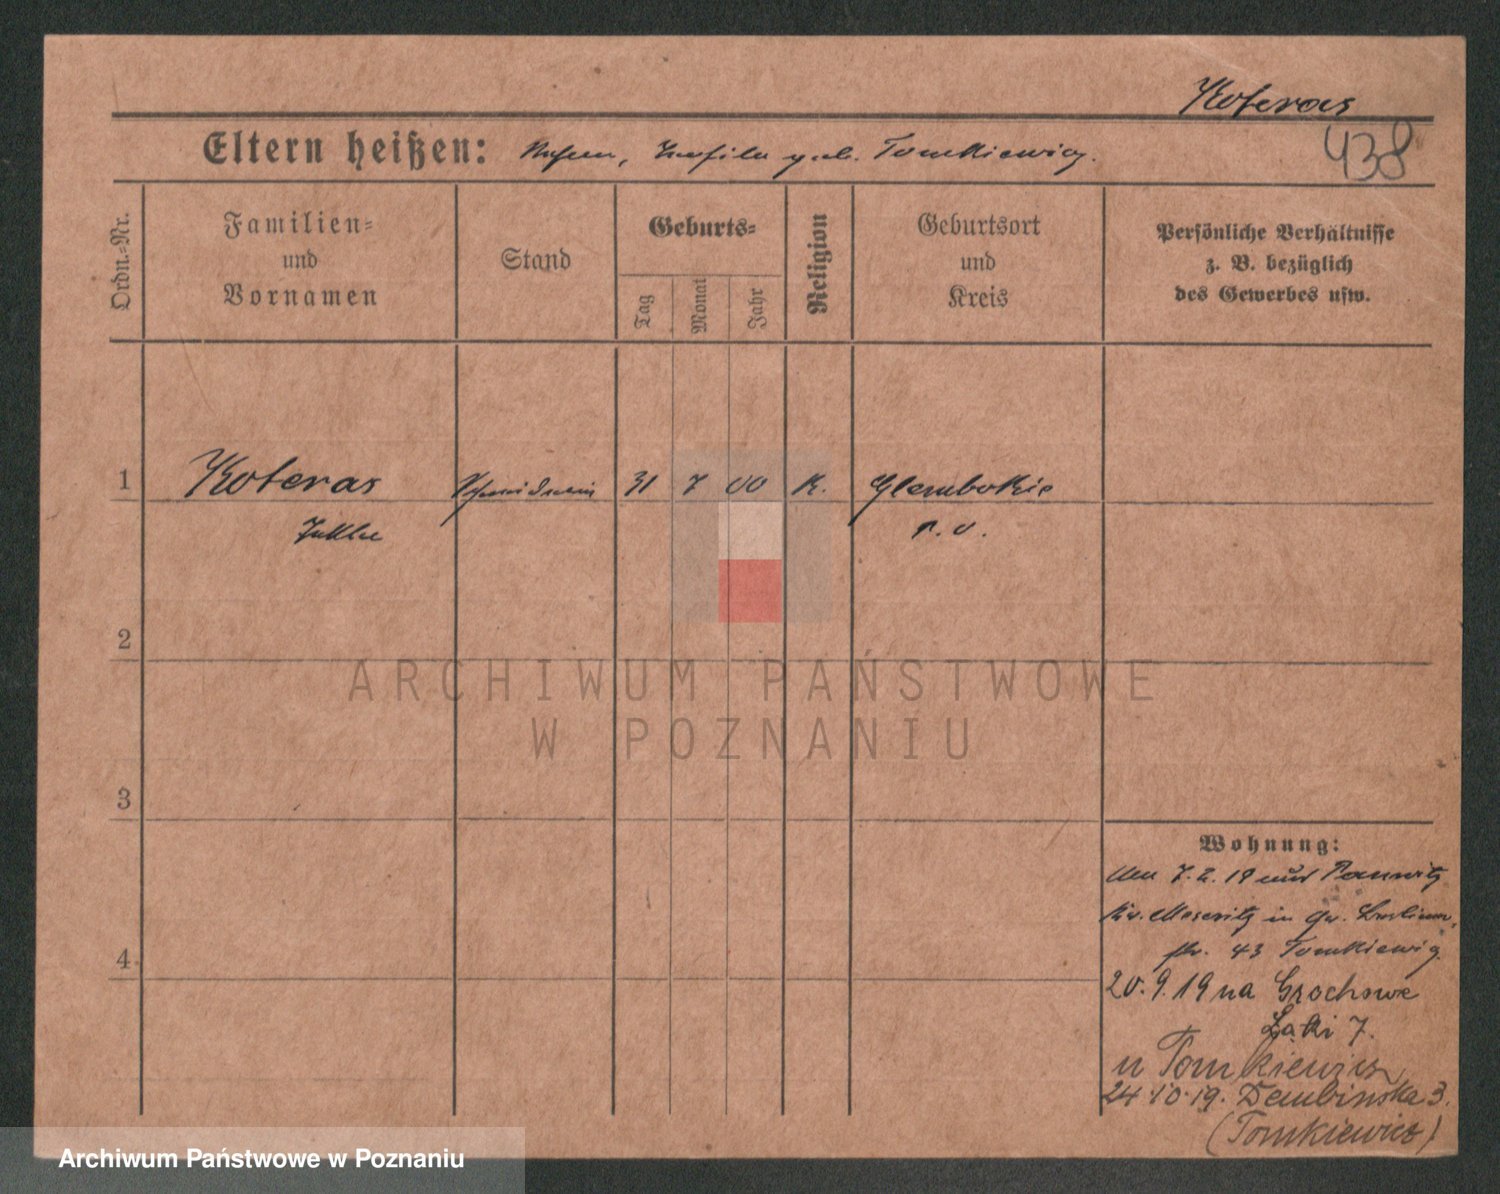 Koteras
438
Eltern heißen: geb. Tomkiewicz.
Ordn.-Nr.
Familien-
und
Vornamen
Stand
Geburts-
Tag
Monat
Jahr
Religion
Geburtsort
und
Kreis
Persönliche Verhältnisse
z. B. bezüglich
des Gewerbes usw.
1 Koteras 31 7 00 K. Glembokie
2
3
4
Wohnung:
7. 2. 19
Kr. Meseritz in
str. 43 Tomkiewicz
20. 9. 19 na Grochowe
Łąki 7.
u Tomkiewicz
24.10.19. Dembinska 3.
(Tomkiewicz)
ARCHIWUM PAŃSTWOWE
W POZNANIU
Archiwum Państwowe w Poznaniu